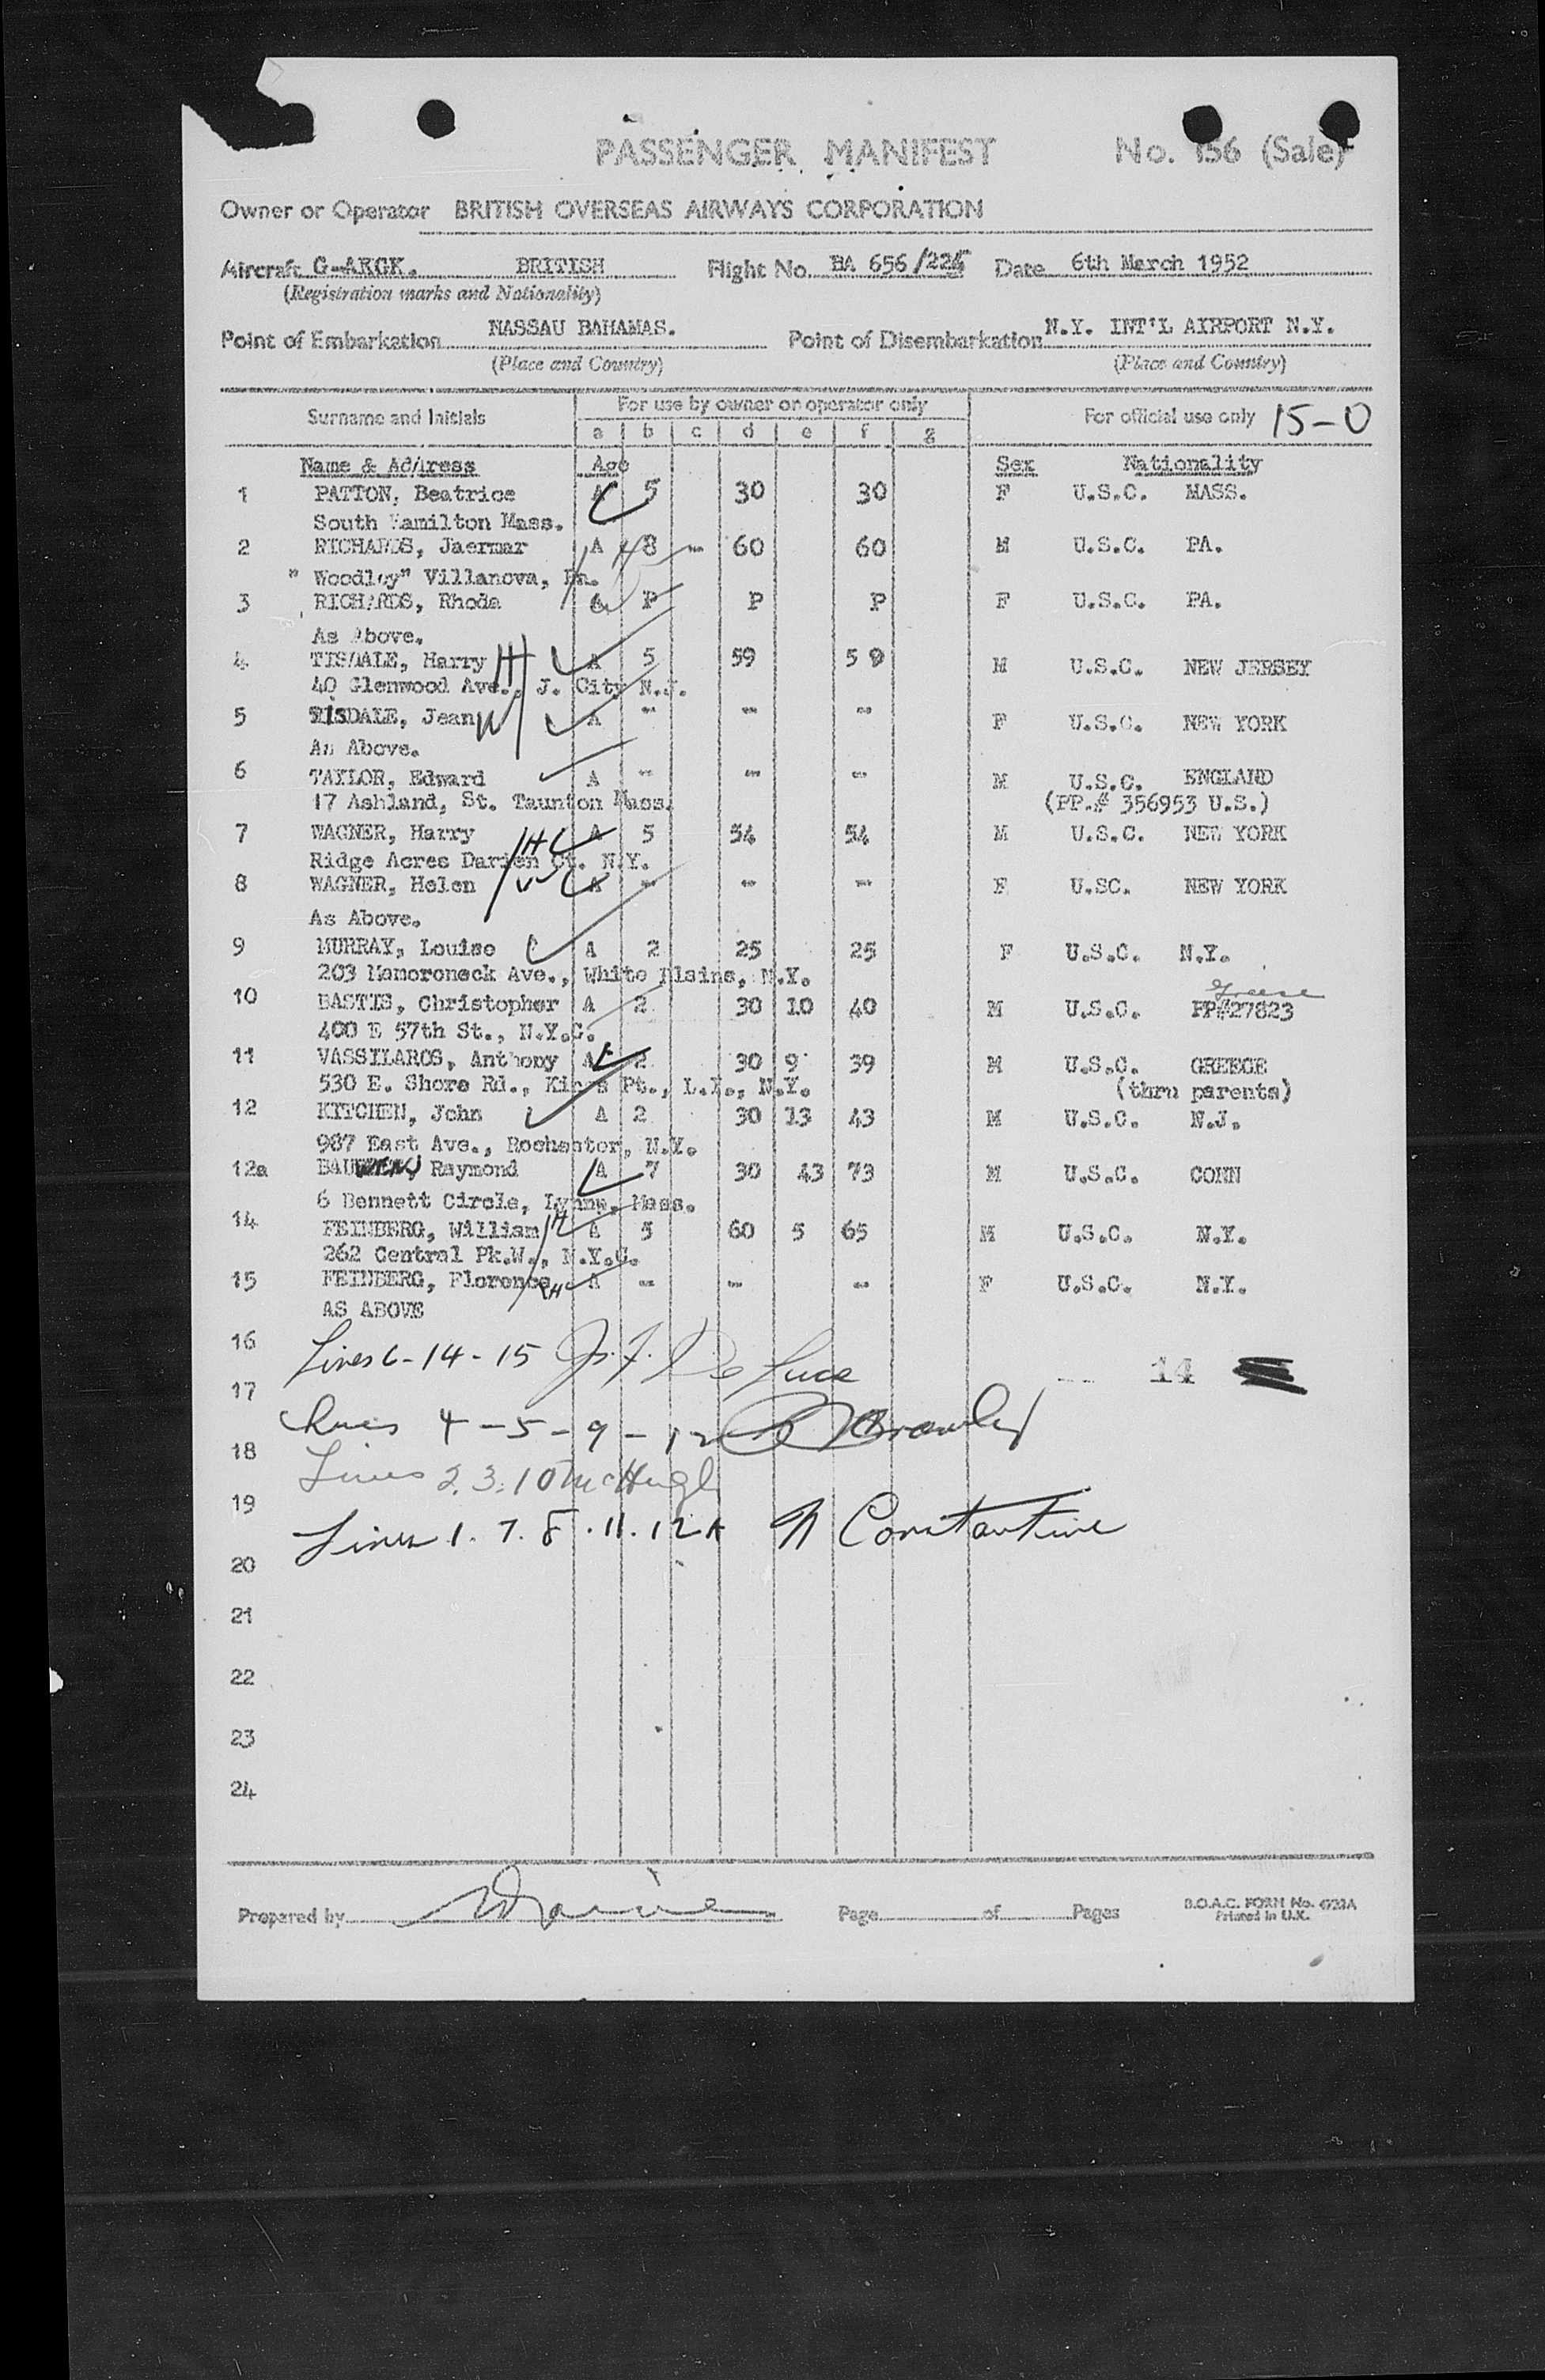 PASSENGER MANIFEST No. 156 (Sale)
Owner or Operator BRITISH OVERSEAS AIRWAYS CORPORATION
Aircraft G-AKGK. BRITISH Flight No. BA 656/224 Date 6th March 1952
(Registration marks and Nationality)
Point of Embarkation NASSAU BAHAMAS. Point of Disembarkation N.Y. INT'L AIRPORT N.Y.
(Place and Country) (Place and Country)
Surname and Initials For use by owner or operator only For official use only 15-0
a b c d e f g
Name & Address Age Sex Nationality
1 PATTON, Beatrice A 5 30 30 F U.S.C. MASS.
South Hamilton Mass.
2 RICHARDS, Jaermar A 48 - 60 60 M U.S.C. PA.
" Woodley" Villanova, Pa.
3 RICHARDS, Rhoda A P P P F U.S.C. PA.
As Above.
4 TISDALE, Harry H A 5 59 59 M U.S.C. NEW JERSEY
40 Glenwood Ave., J. City N.J.
5 TISDALE, Jean W A " - - F U.S.C. NEW YORK
As Above.
6 TAYLOR, Edward A - - - M U.S.C. ENGLAND
17 Ashland, St. Taunton Mass. (PP.# 356953 U.S.)
7 WAGNER, Harry H A 5 54 54 M U.S.C. NEW YORK
Ridge Acres Darien Ct. N.Y.
8 WAGNER, Helen W A - - - F U.SC. NEW YORK
As Above.
9 MURRAY, Louise A 2 25 25 F U.S.C. N.Y.
203 Mamoroneck Ave., White Plains, N.Y.
Greece
10 BASTIS, Christopher A 2 30 10 40 M U.S.C. PP#27823
400 E 57th St., N.Y.C.
11 VASSILAROS, Anthony A 2 30 9 39 M U.S.C. GREECE
530 E. Shore Rd., Kings Pt., L.I., N.Y. (thru parents)
12 KITCHEN, John A 2 30 13 43 M U.S.C. N.J.
987 East Ave., Rochester, N.Y.
12a Raymond A 7 30 43 73 M U.S.C. CONN
6 Bennett Circle, Lynne, Mass.
14 FEINBERG, William H A 5 60 5 65 M U.S.C. N.Y.
262 Central Pk.W., N.Y.C.
15 FEINBERG, Florence A - - - F U.S.C. N.Y.
AS ABOVE
16 Lines 6-14-15 J. F. De Luce 14
17 Lines 4-5-9-12 Brawley
18 Lines 2.3.10 McHugh
19 Lines 1. 7. 8. 11. 12A N Constantine
20
21
22
23
24
Prepared by Page of Pages B.O.A.C. FORM No.
Printed in U.K.